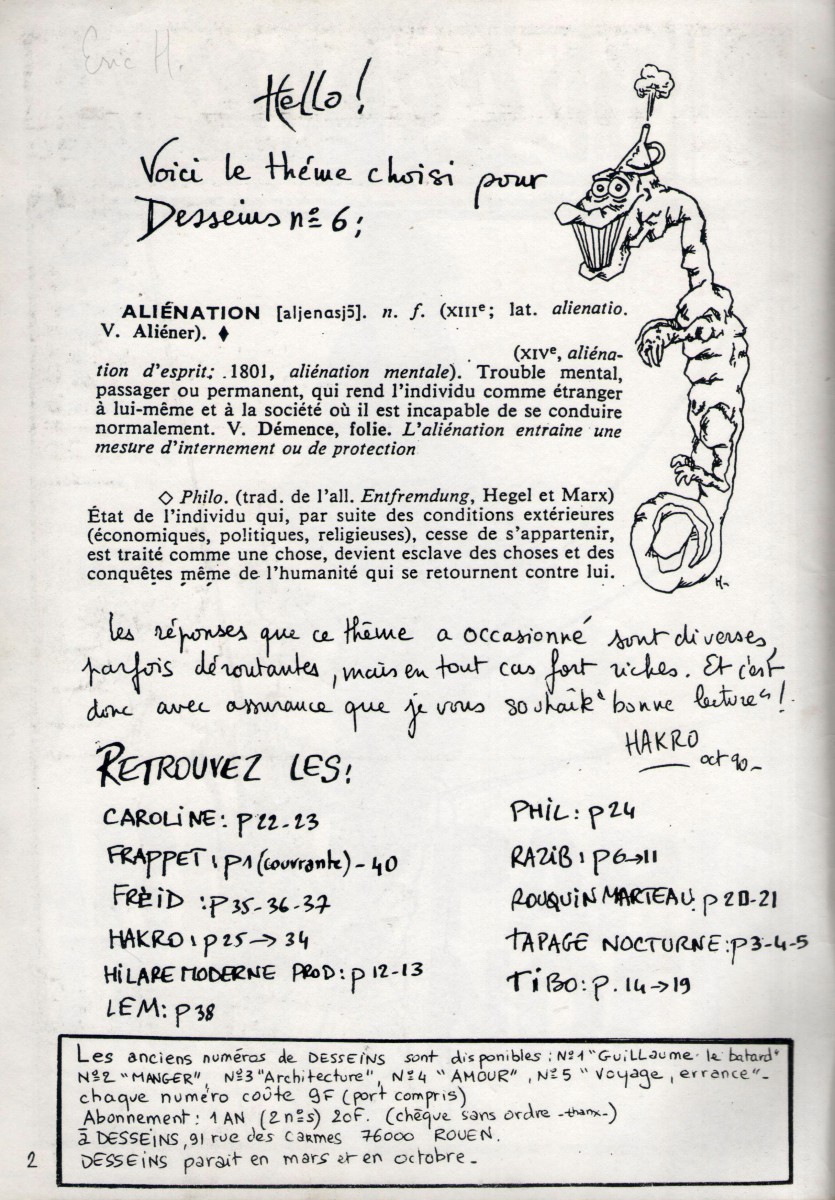 Eric H.
Hello!
Voici le théme choisi pour
Desseins nº 6;
ALIÉNATION [aljenasjɔ̃]. n. f. (XIIIᵉ; lat. alienatio.
V. Aliéner). ♦
(XIVᵉ, aliéna-
tion d'esprit; .1801, aliénation mentale). Trouble mental,
passager ou permanent, qui rend l'individu comme étranger
à lui-même et à la société où il est incapable de se conduire
normalement. V. Démence, folie. L'aliénation entraîne une
mesure d'internement ou de protection
◇ Philo. (trad. de l'all. Entfremdung, Hegel et Marx)
État de l'individu qui, par suite des conditions extérieures
(économiques, politiques, religieuses), cesse de s'appartenir,
est traité comme une chose, devient esclave des choses et des
conquêtes même de l'humanité qui se retournent contre lui.
H-
les réponses que ce thème a occasionné sont diverses,
parfois déroutantes, mais en tout cas fort riches. Et c'est
donc avec assurance que je vous souhaite "bonne lecture"!
HAKRO
oct 90_
RETROUVEZ LES:
CAROLINE: p 22-23
FRAPPET: p1 (couvrante) - 40
FRÈID : p35-36-37
HAKRO: p25→34
HILARE MODERNE PROD: p 12-13
LEM: p38
PHIL: p24
RAZIB: p6→11
ROUQUIN MARTEAU: p 20-21
TAPAGE NOCTURNE: p3-4-5
TIBO: p. 14→19
Les anciens numéros de DESSEINS sont disponibles : Nº1 "GUILLAUME le batard"
Nº2 "MANGER", Nº3 "Architecture", Nº4 "AMOUR", Nº5 "Voyage, errance"_
chaque numéro coûte 9F (port compris)
Abonnement: 1 AN (2 nºs) 20F. (chèque sans ordre -thanx-)
à DESSEINS, 91 rue des Carmes 76000 ROUEN.
DESSEINS parait en mars et en octobre_
2